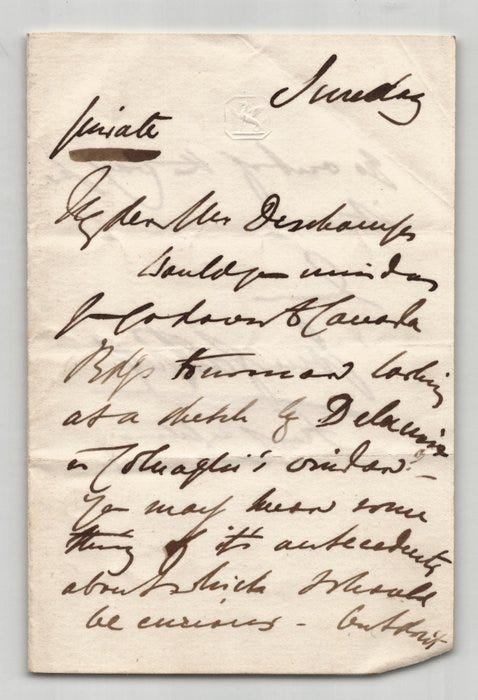 Sunday
private
My dear Mr Deschamps
Would you mind as
you go down to Canada
Bdgs tomorrow looking
at a sketch by Delaroche
in Colnaghi's window? -
You may hear some
thing of its antecedents
about which I should
be curious - but don't